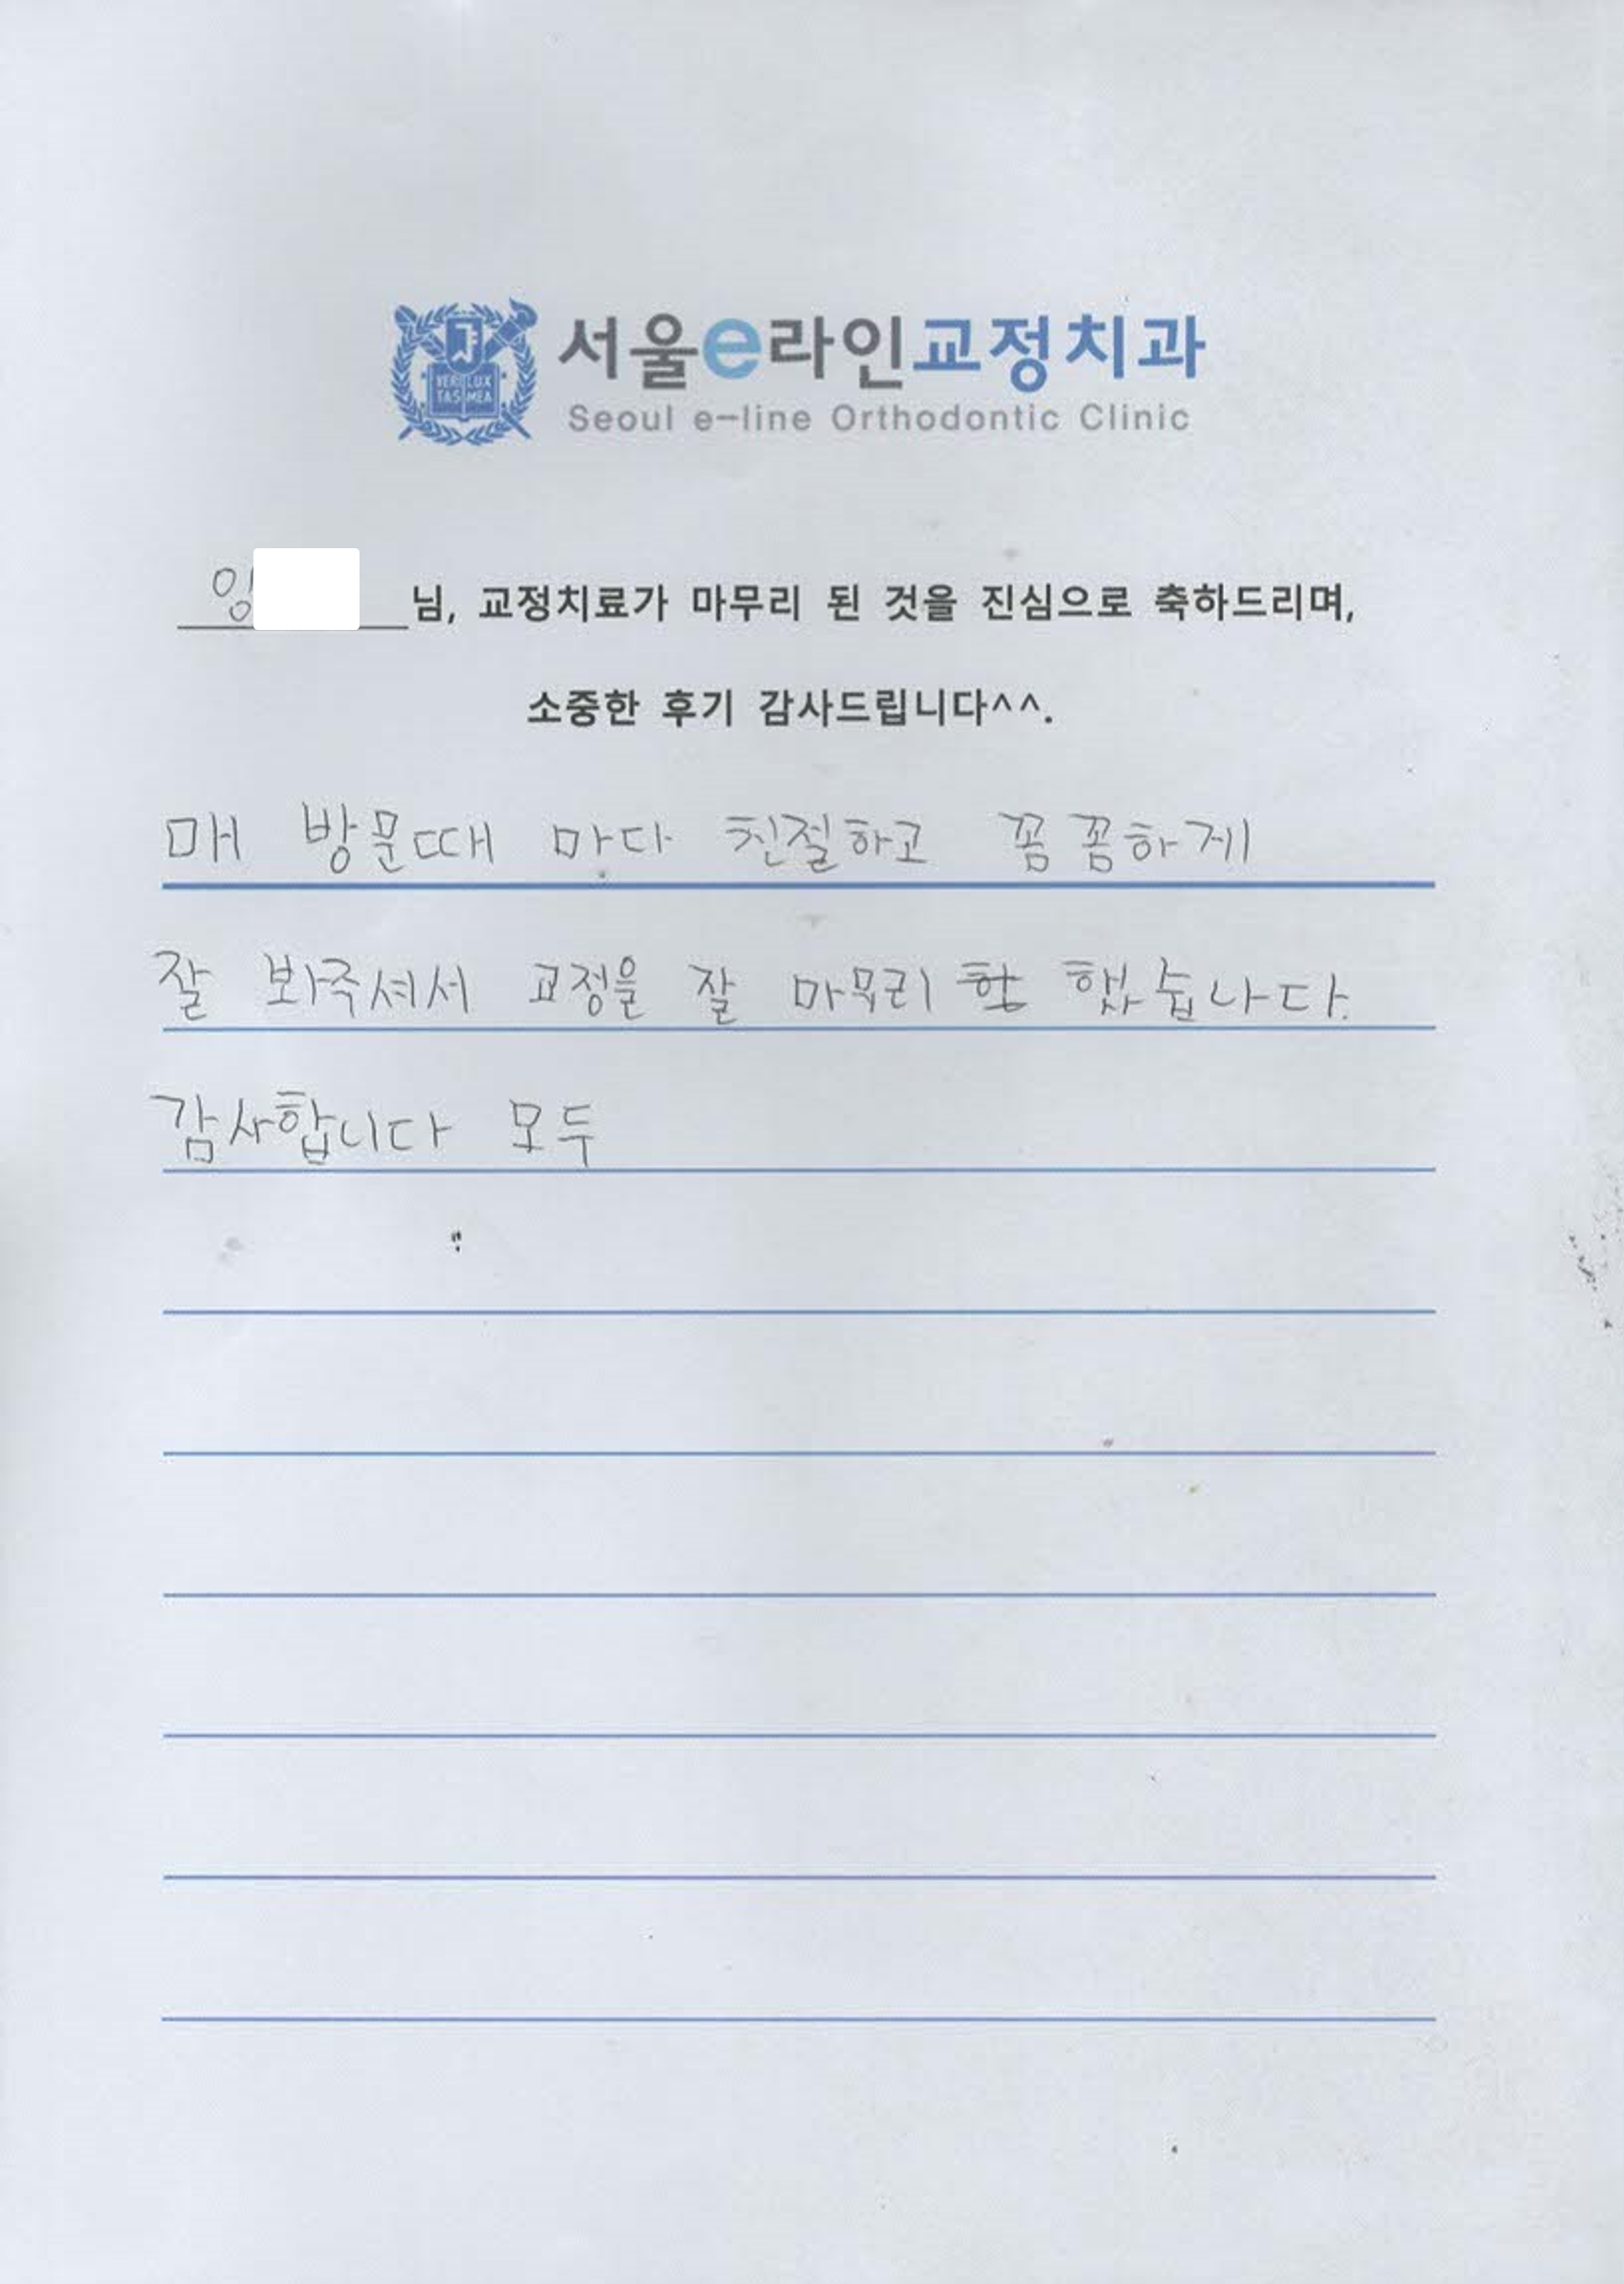 VERI LUX
TAS MEA
서울e라인교정치과
Seoul e-line Orthodontic Clinic
님, 교정치료가 마무리 된 것을 진심으로 축하드리며,
소중한 후기 감사드립니다^^.
매 방문때 마다 친절하고 꼼꼼하게
잘 봐주셔서 교정을 잘 마무리 했습니다.
감사합니다 모두